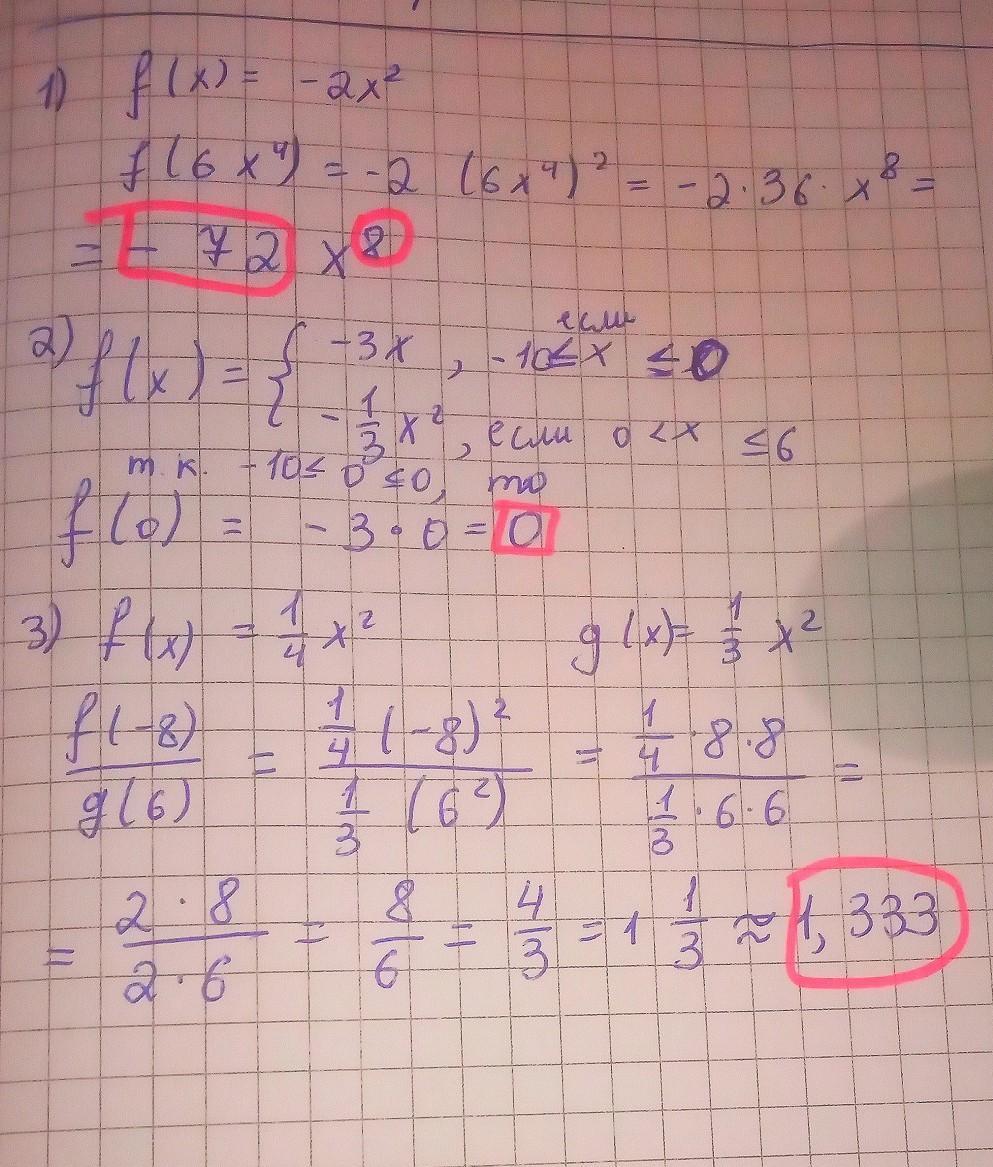 1) f(x) = -2x²
f(6x⁴) = -2 (6x⁴)² = -2·36·x⁸ =
= -72 x⁸
2) f(x) = { -3x, если -10 ≤ x ≤ 0
-1/3 x², если 0 < x ≤ 6
т.к. -10 ≤ 0 ≤ 0, то
f(0) = -3·0 = 0
3) f(x) = 1/4 x² g(x) = 1/3 x²
f(-8)/g(6) = (1/4 (-8)²)/(1/3 (6²)) = (1/4·8·8)/(1/3·6·6) =
= (2·8)/(2·6) = 8/6 = 4/3 = 1 1/3 ≈ 1,333